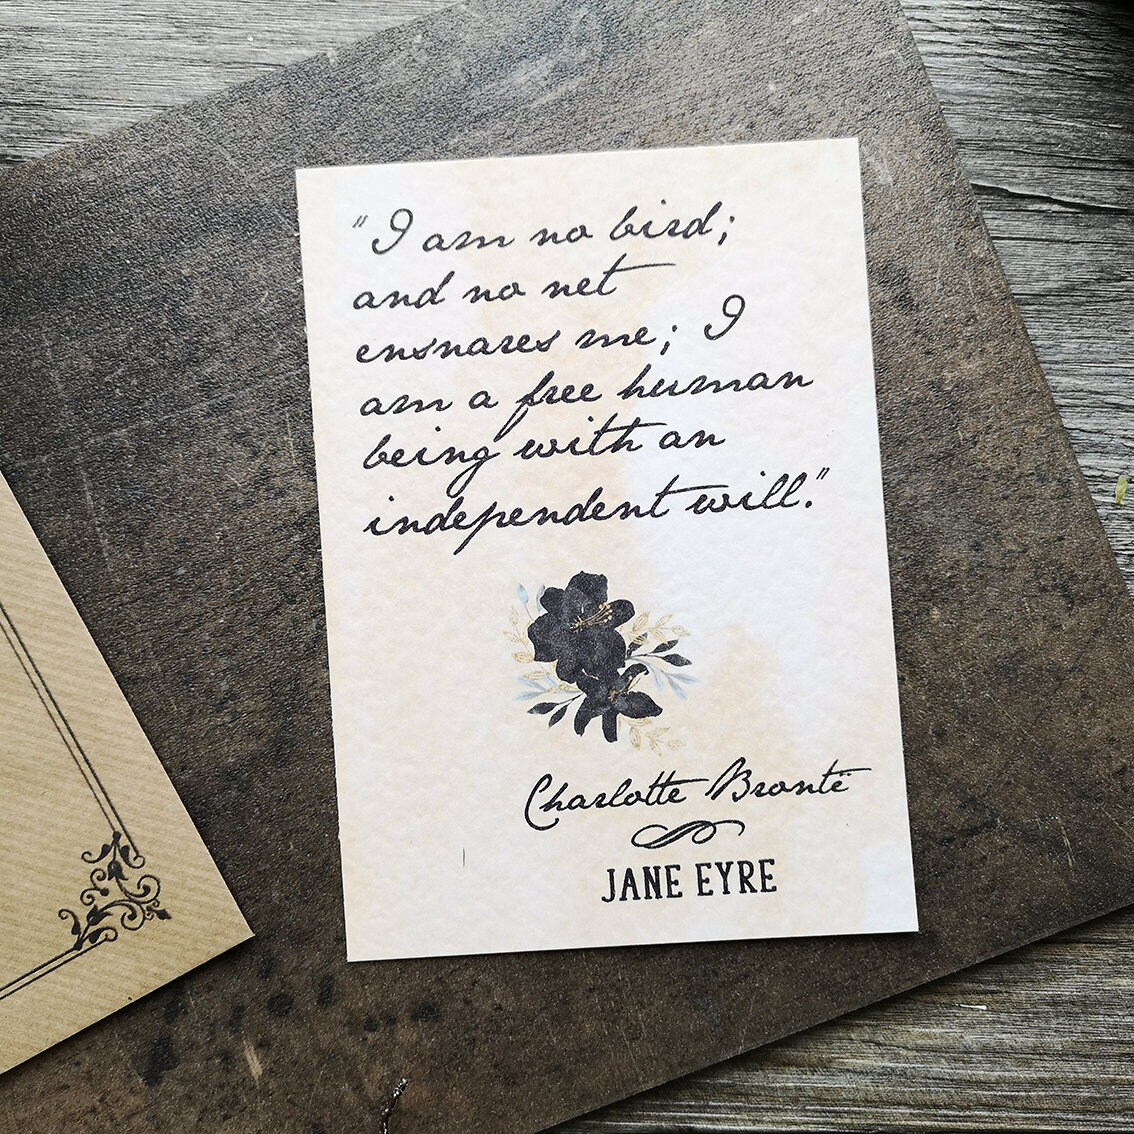 "I am no bird;
and no net
ensnares me; I
am a free human
being with an
independent will."
Charlotte Brontë
JANE EYRE